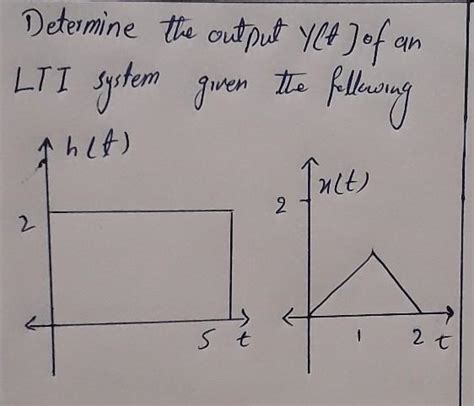 Determine the output Y(t) of an
LTI system given the following
h(t)
2
5 t
x(t)
2
1 2 t